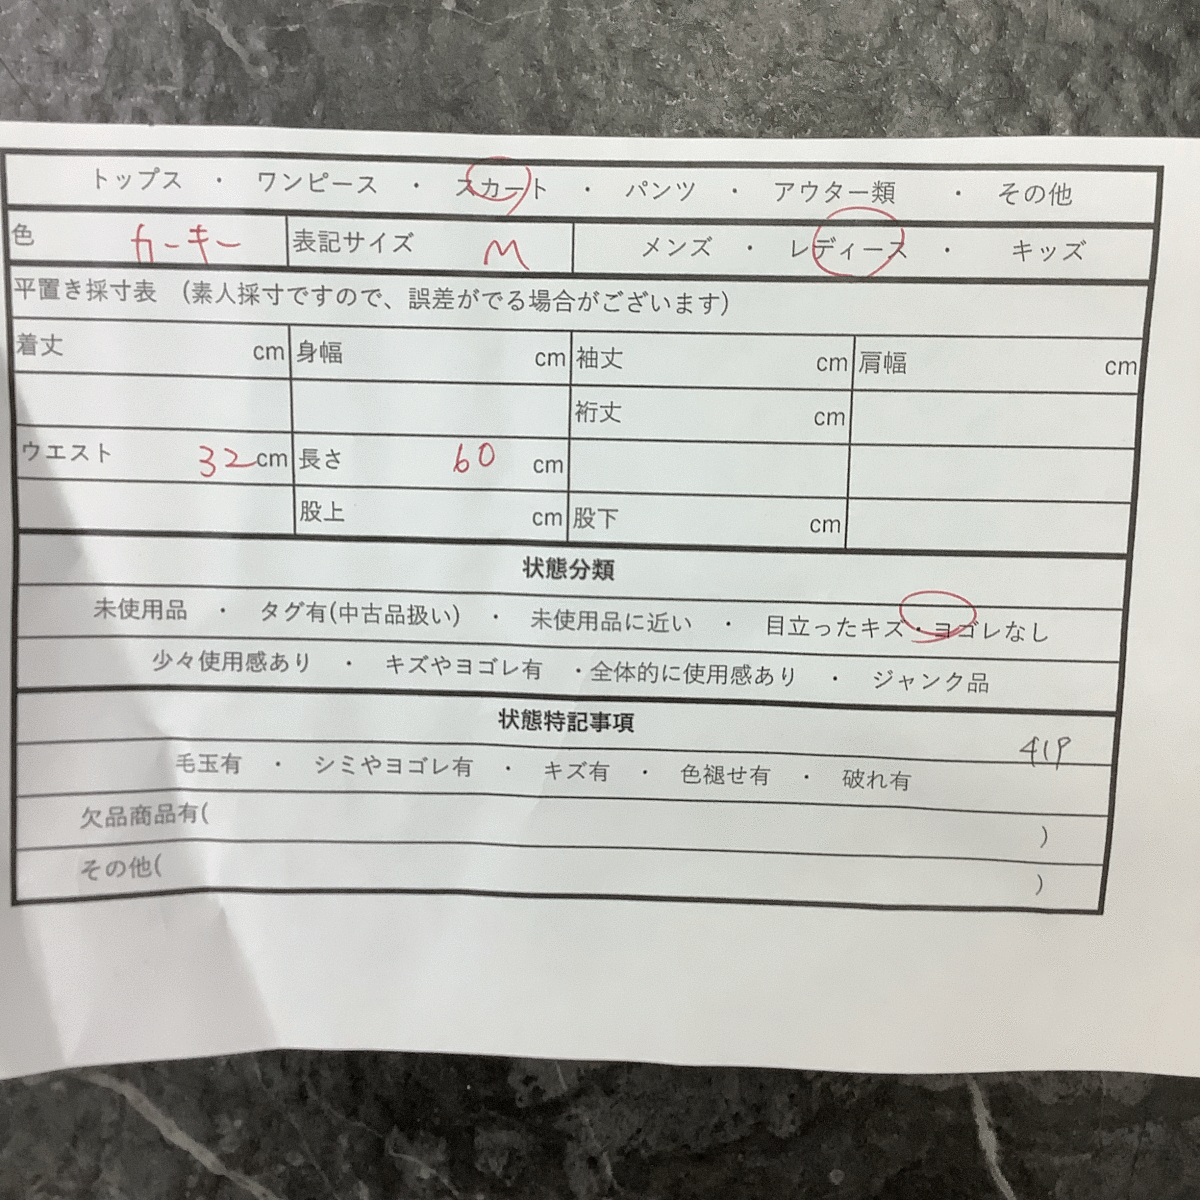 トップス ・ ワンピース ・ スカート ・ パンツ ・ アウター類 ・ その他
色 カーキー 表記サイズ M メンズ ・ レディース ・ キッズ
平置き採寸表 (素人採寸ですので、誤差がでる場合がございます)
着丈 cm 身幅 cm 袖丈 cm 肩幅 cm
裄丈 cm
ウエスト 32cm 長さ 60 cm
股上 cm 股下 cm
状態分類
未使用品 ・ タグ有(中古品扱い) ・ 未使用品に近い ・ 目立ったキズ・ヨゴレなし
少々使用感あり ・ キズやヨゴレ有 ・全体的に使用感あり ・ ジャンク品
状態特記事項
41P
毛玉有 ・ シミやヨゴレ有 ・ キズ有 ・ 色褪せ有 ・ 破れ有
欠品商品有( )
その他( )